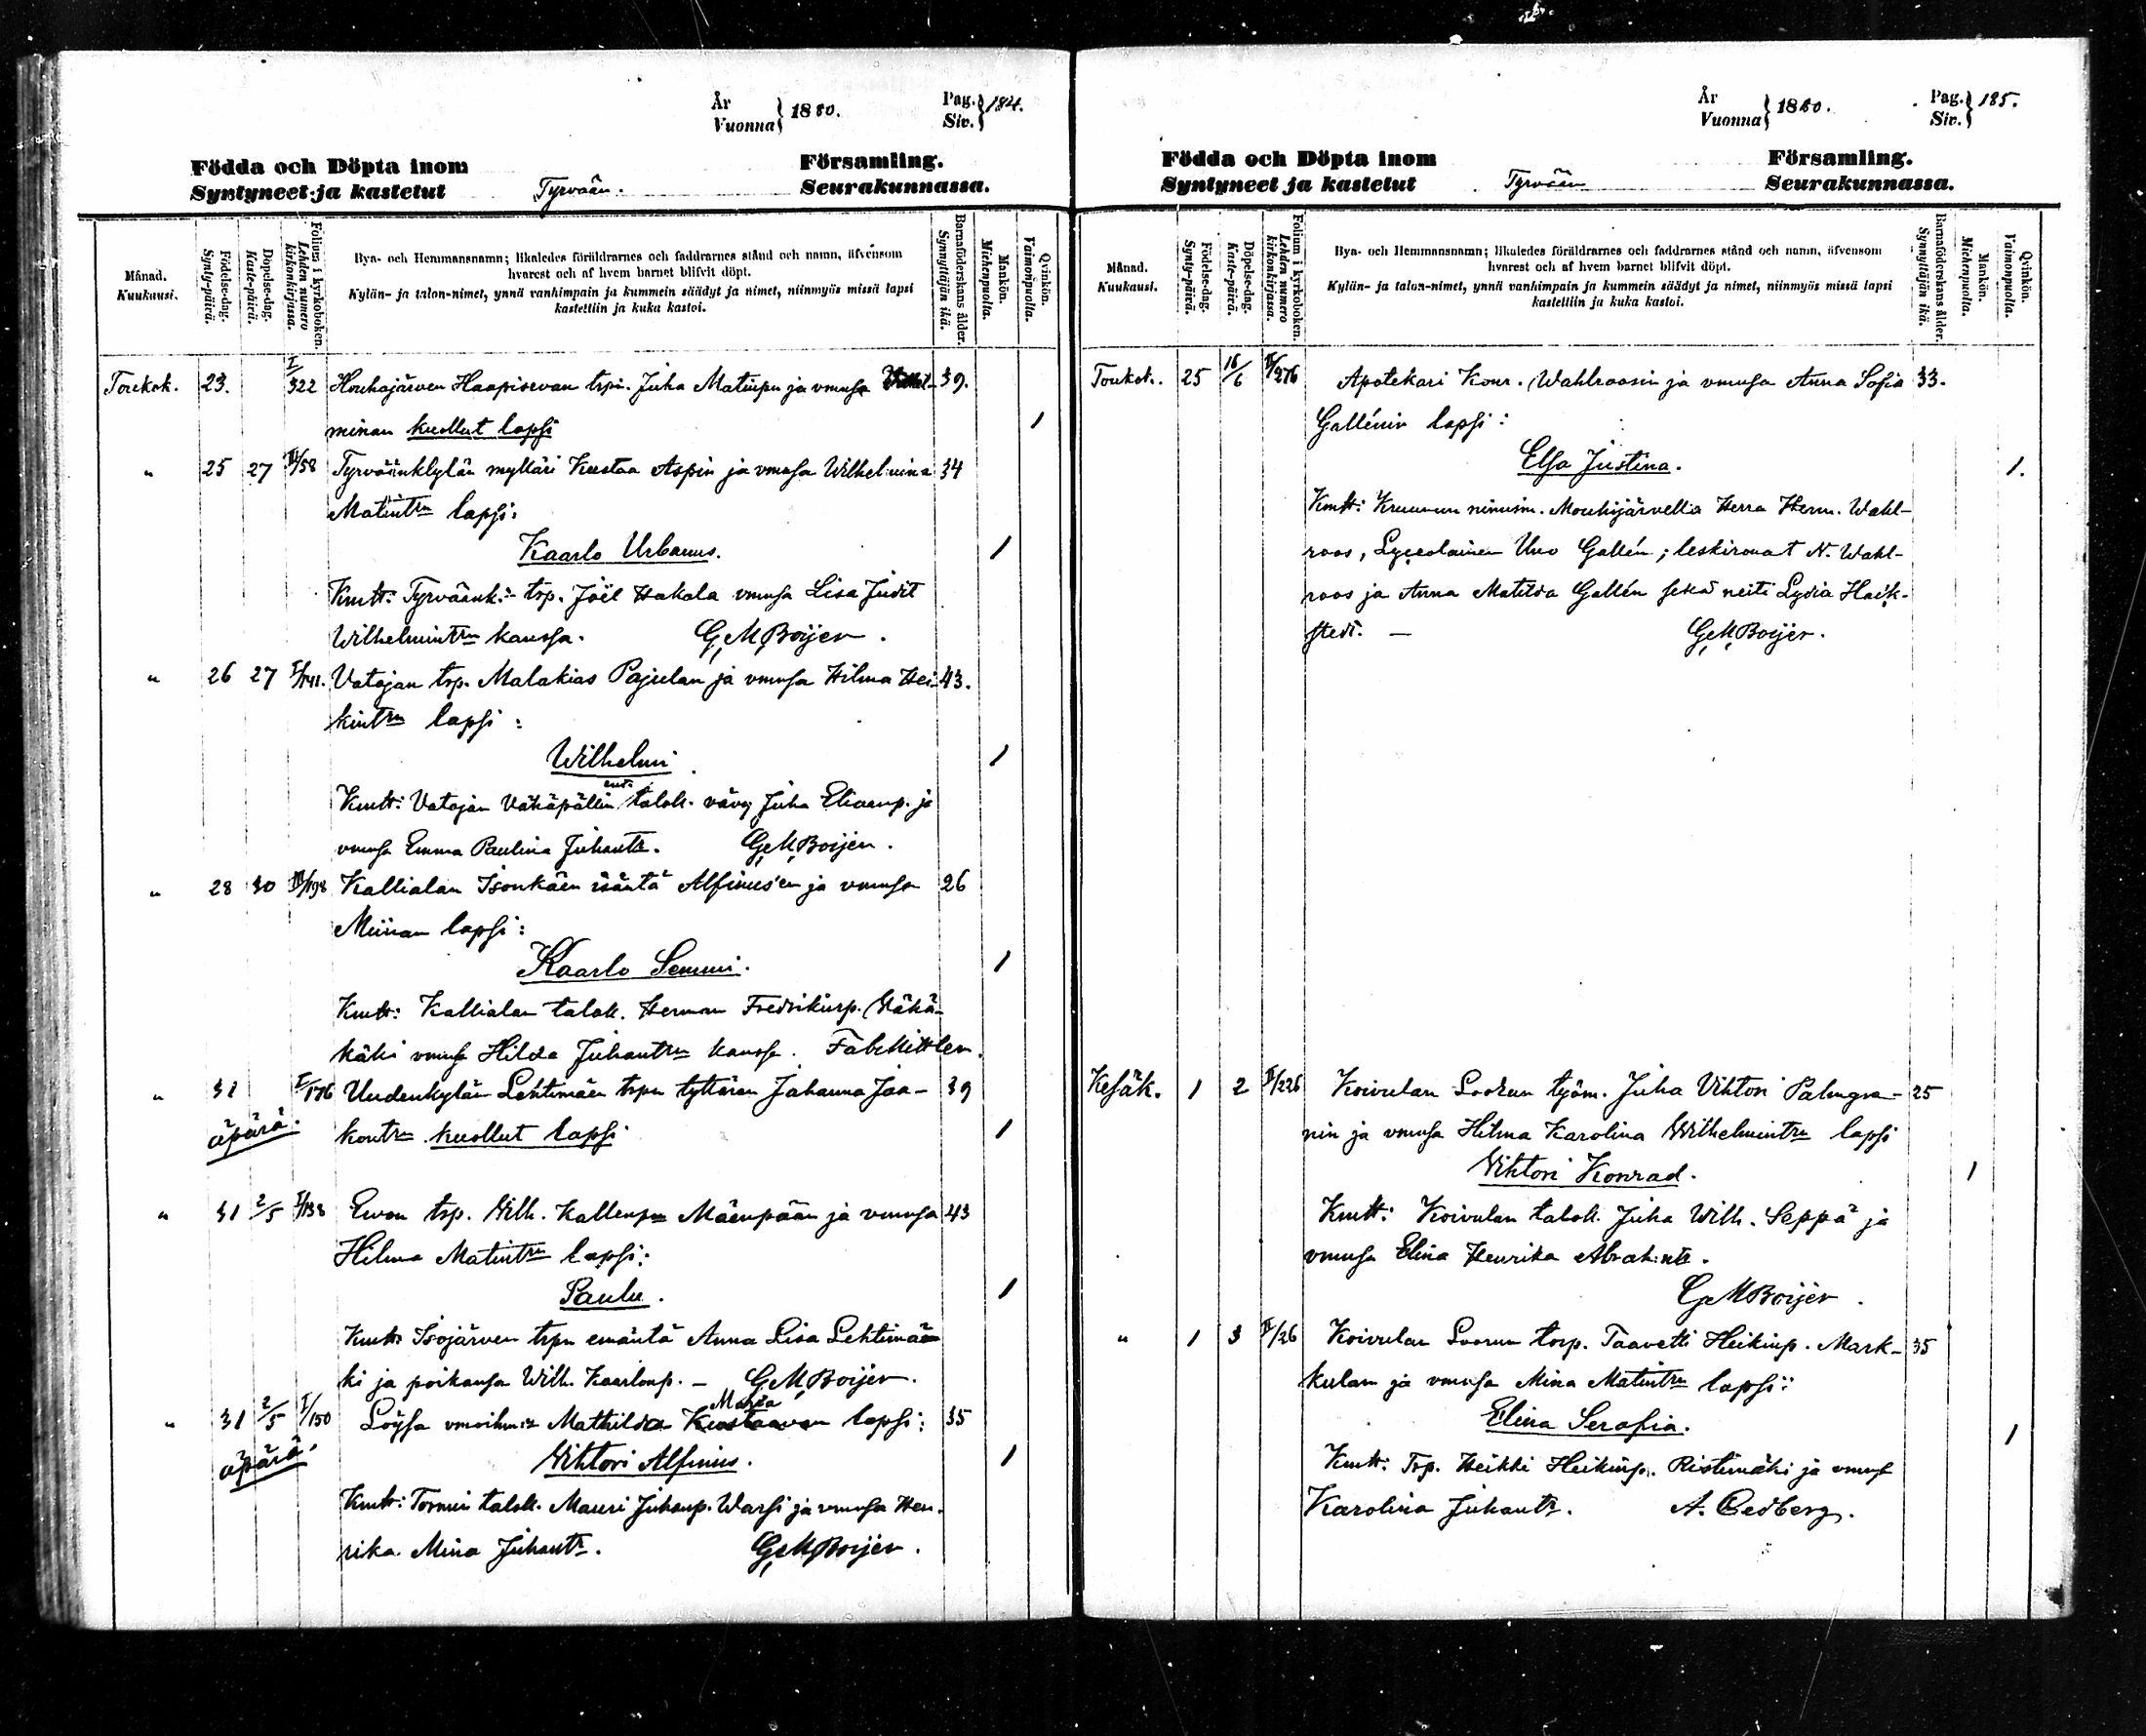 År
Vuonna } 1880.
Pag.
Siv. } 184.
Födda och Döpta inom Församling.
Syntyneet ja kastetut Tyrvään. Seurakunnassa.
Månad.
Kuukausi.
Födelse-dag.
Synty-päivä.
Döpelse-dag.
Kaste-päivä.
Folium i kyrkoboken.
Lehden numero
kirkonkirjassa.
Bya- och Hemmansnamn; likaledes föräldrarnes och faddrarnes stånd och namn, äfvensom
hvarest och af hvem barnet blifvit döpt.
Kylän- ja talon-nimet, ynnä vanhimpain ja kummein säädyt ja nimet, niinmyös missä lapsi
kastettiin ja kuka kastoi.
Barnaföderskans ålder.
Synnyttäjän ikä.
Mankön.
Miehenpuolta.
Qvinkön.
Vaimonpuolta.
Toukok. 23. I/322 Houhajärven Haapisevan trpi. Juha Matinpn ja vmnsa Vilhel- 39.
minan kuollut lapsi 1
" 25 27 II/58 Tyrväänkylän mylläri Kustaa Aspin ja vmnsa Wilhelmina 34
Matintrn lapsi:
Kaarlo Urbanus. 1
Kmtt: Tyrväänk:- trp. Joel Hakala vmnsa Lisa Judit
Wilhelmintrn kanssa. G,M,Boijer.
" 26 27 I/141. Vatajan trp. Malakias Pajulan ja vmnsa Hilma Hei- 43.
kintrn lapsi:
Wilhelmi 1
Kmtt: Vatajan Vähäpällin ent. talok. vävy Juha Eliaanp. ja
vmnsa Emma Paulina Juhantr. G,M,Boijer.
" 28 30 III/198 Kallialan Isonkäen isäntä Alfinus'en ja vmnsa 26
Miinan lapsi:
Kaarlo Semmi. 1
Kmtt: Kallialan talok. Herman Fredrikinp. Wähä-
käki vmnsa Hilda Juhantrn kanssa. Fab. Hittler.
" 31 I/176 Uudenkylän Lehtimäen trpn tyttären Johanna Jaa- 39
äpärä. kontrn kuollut lapsi 1
" 31 2/5 I/138 Ewon trp. Wilh. Kallenpn Mäenpään ja vmnsa 43
Hilma Matintrn lapsi:
Paulu. 1
Kmtt: Isojärven trpn emäntä Anna Lisa Lehtimä-
ki ja poikansa Wilh. Kaarlonp. – G,M,Boijer.
" 31 2/5 I/150 Löysä vmoihmis Mathilda Kustaavan Manda lapsi: 35
äpärä. Vihtori Alfinus. 1
Kmtt: Tormin talok. Mauri Juhanp. Warsi ja vmnsa Hen-
rika Mina Juhantr. G,M,Boijer.
År
Vuonna } 1880.
Pag.
Siv. } 185.
Födda och Döpta inom Församling.
Syntyneet ja kastetut Tyrvään Seurakunnassa.
Månad.
Kuukausi.
Födelse-dag.
Synty-päivä.
Döpelse-dag.
Kaste-päivä.
Folium i kyrkoboken.
Lehden numero
kirkonkirjassa.
Bya- och Hemmansnamn; likaledes föräldrarnes och faddrarnes stånd och namn, äfvensom
hvarest och af hvem barnet blifvit döpt.
Kylän- ja talon-nimet, ynnä vanhimpain ja kummein säädyt ja nimet, niinmyös missä lapsi
kastettiin ja kuka kastoi.
Barnaföderskans ålder.
Synnyttäjän ikä.
Mankön.
Miehenpuolta.
Qvinkön.
Vaimonpuolta.
Toukok. 25 16/6 II/276 Apotekari Konr. Wahlroosin ja vmnsa Anna Sofia 33.
Gallénin lapsi:
Elsa Justina. 1.
Kmtt: Kruunun nimism. Mouhijärvellä Herra Herm. Wahl-
roos, Lyceolainen Uno Gallén; leskirouat N. Wahl-
roos ja Anna Matilda Gallén sekä neiti Lydia Hack-
stedt. – G,M,Boijer.
Kesäk. 1 2 II/226 Koivulan Sookun työm. Juha Vihtori Palmgre- 25
nin ja vmnsa Hilma Karolina Wilhelmintrn lapsi
Vihtori Konrad. 1
Kmtt: Koivulan talok. Juha Wilh. Seppä ja
vmnsa Elina Henrika Abrah:ntr.
G,M,Boijer.
" 1 3 II/26 Koivulan Suorun torp. Taavetti Heikinp. Mark- 35
kulan ja vmnsa Mina Matintrn lapsi:
Elina Serafia. 1
Kmtt: Trp. Heikki Heikinp. Ristimäki ja vmnsa
Karolina Juhantr. A. Cedberg.